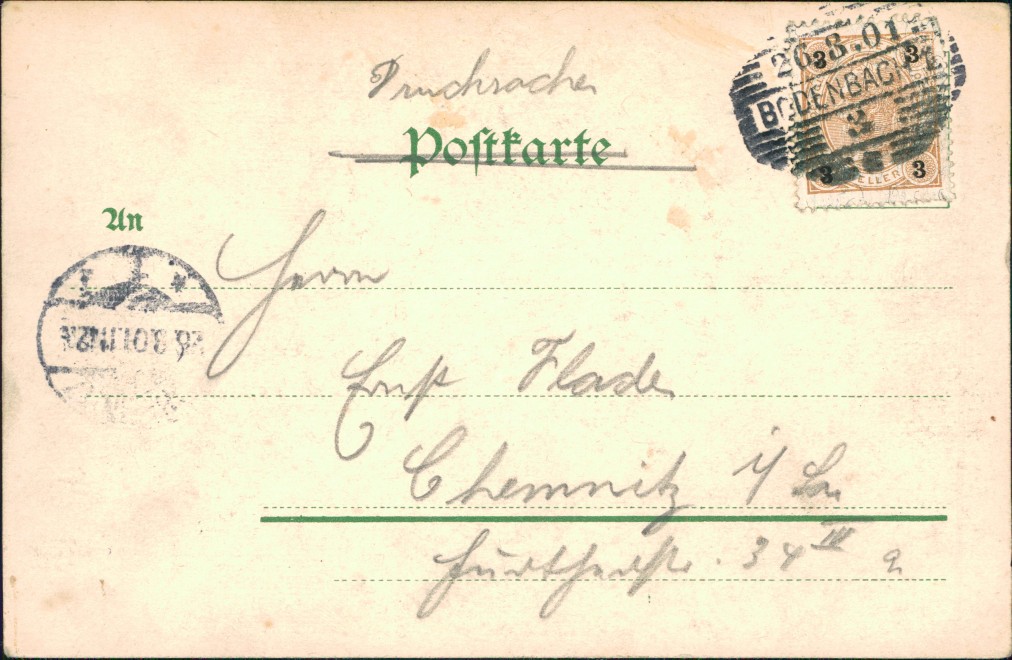 Drucksache
26.8.01
BODENBACH
2
3 3
3 HELLER 3
Postkarte
An
26.8.01
Herrn
Ernst Flade
Chemnitz i/Sa
Fürtherstr. 34 III